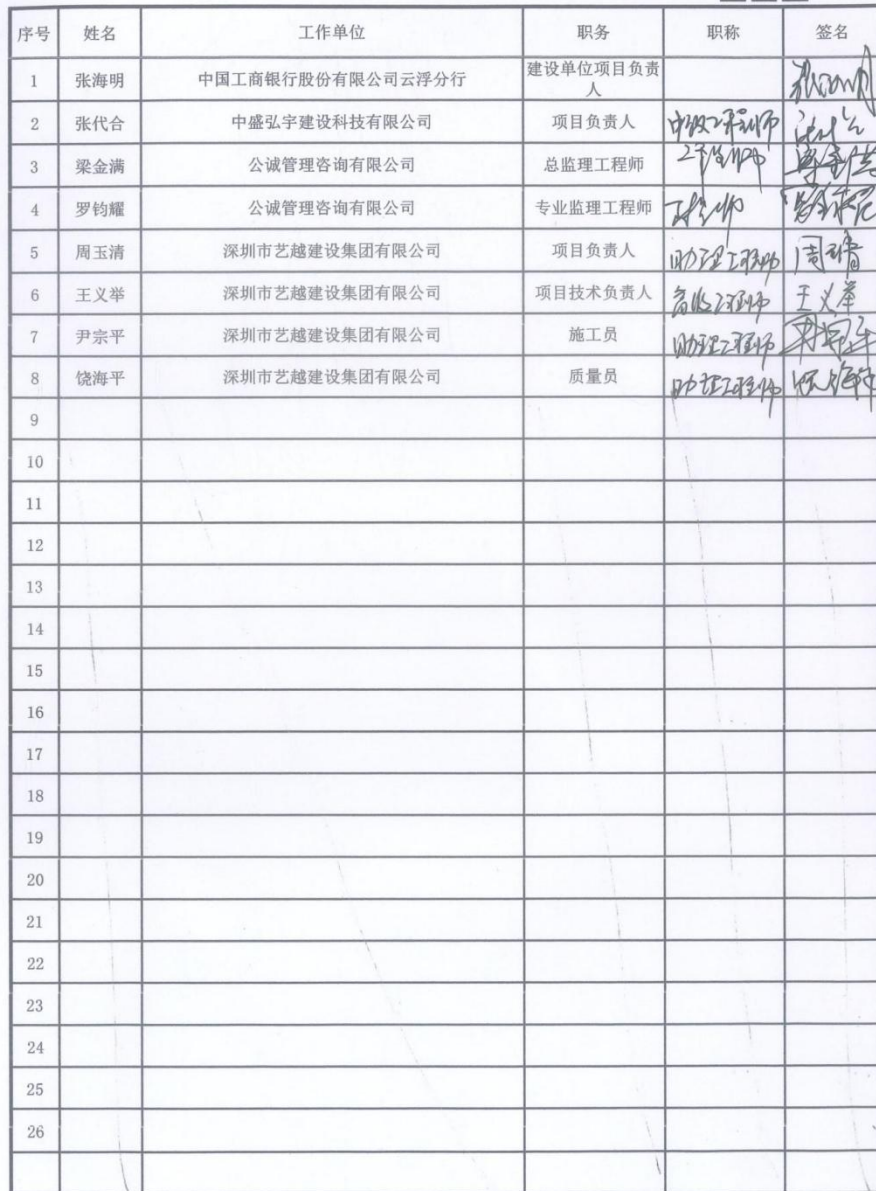 序号 姓名 工作单位 职务 职称 签名
1 张海明 中国工商银行股份有限公司云浮分行 建设单位项目负责
人
2 张代合 中盛弘宇建设科技有限公司 项目负责人 中级工程师
3 梁金满 公诚管理咨询有限公司 总监理工程师 工程师
4 罗钧耀 公诚管理咨询有限公司 专业监理工程师 工程师
5 周玉清 深圳市艺越建设集团有限公司 项目负责人 助理工程师 周玉清
6 王义举 深圳市艺越建设集团有限公司 项目技术负责人 高级工程师 王义举
7 尹宗平 深圳市艺越建设集团有限公司 施工员 助理工程师
8 饶海平 深圳市艺越建设集团有限公司 质量员 助理工程师 饶海平
9
10
11
12
13
14
15
16
17
18
19
20
21
22
23
24
25
26